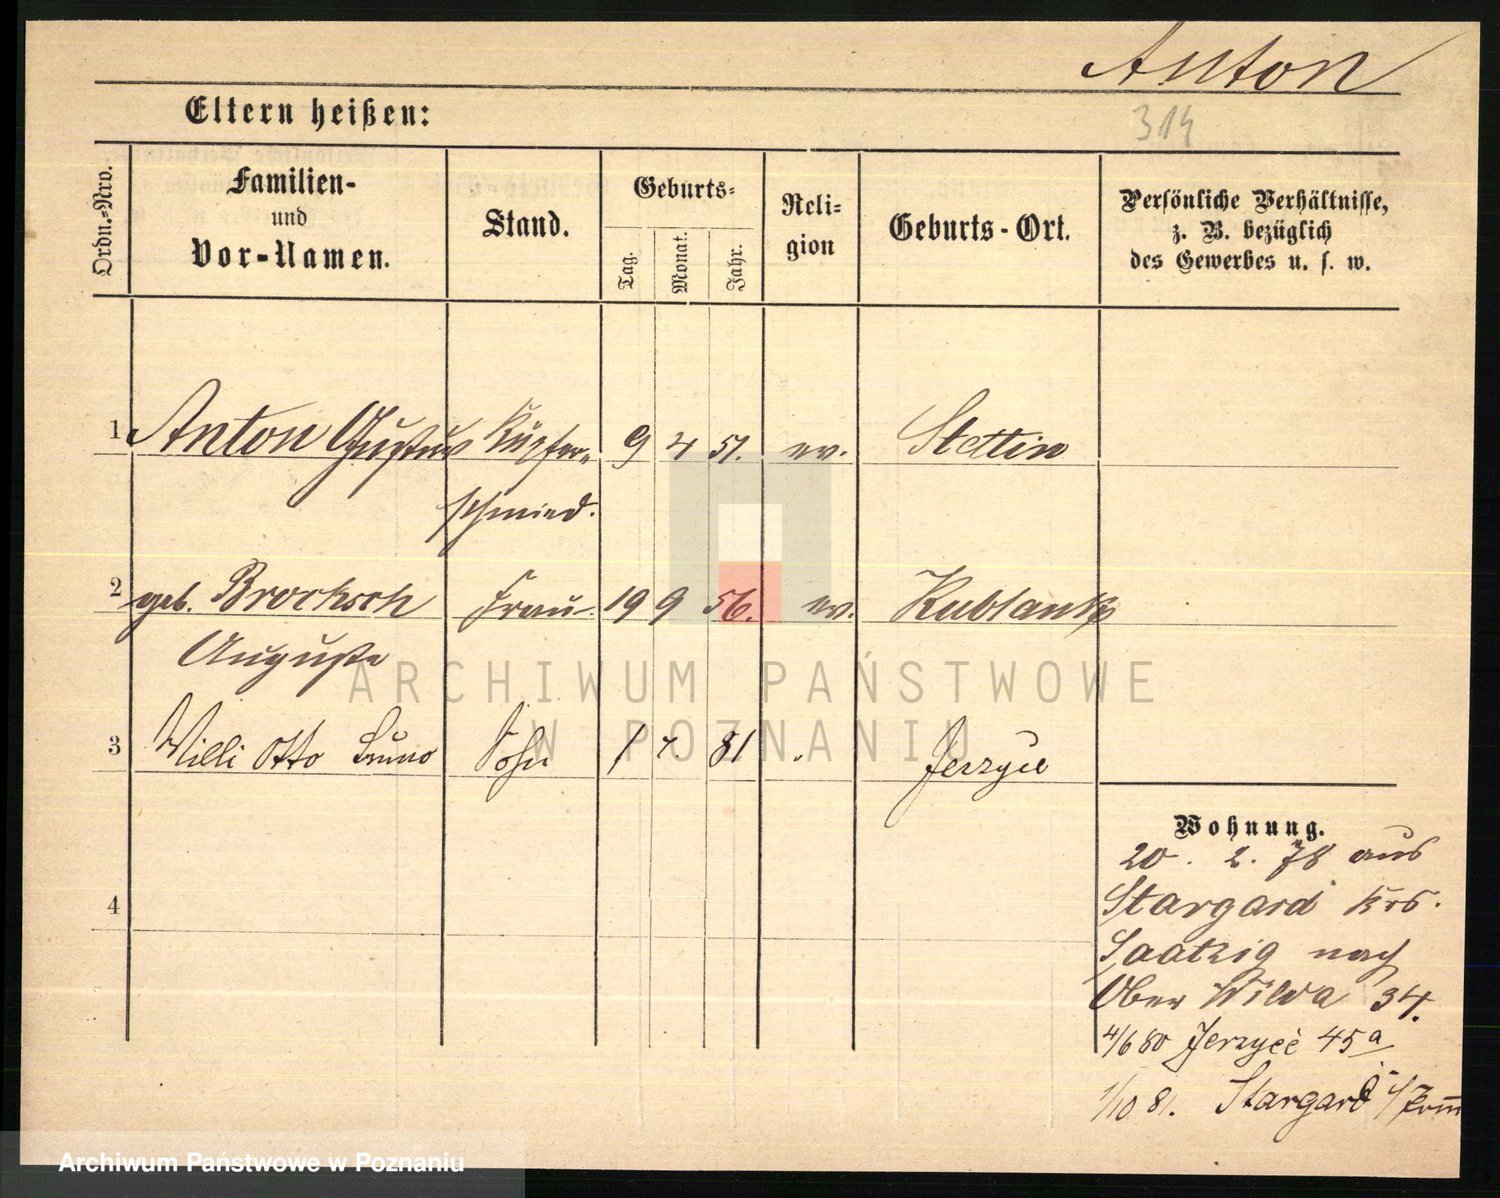 Anton
Eltern heißen:
314
Ordn.-Nro.
Familien-
und
Vor-Namen.
Stand.
Geburts-
Tag.
Monat.
Jahr.
Reli-
gion
Geburts-Ort.
Persönliche Verhältnisse,
z. B. bezüglich
des Gewerbes u. s. w.
1 Anton Gustav Kupfer- 9 4 51. ev. Stettin
schmied.
2 geb. Brocksch Frau 19 9 56. ev. Kublank
Auguste
3 Willi Otto Bruno Sohn 1 81 Jerzyce
4
Wohnung.
20. 2. 78 aus
Stargard Krs.
Saatzig nach
Ober Wilda 34.
4/6 80 Jerzyce 45a
1/10 81. Stargard i/Pom
ARCHIWUM PAŃSTWOWE
W POZNANIU
Archiwum Państwowe w Poznaniu